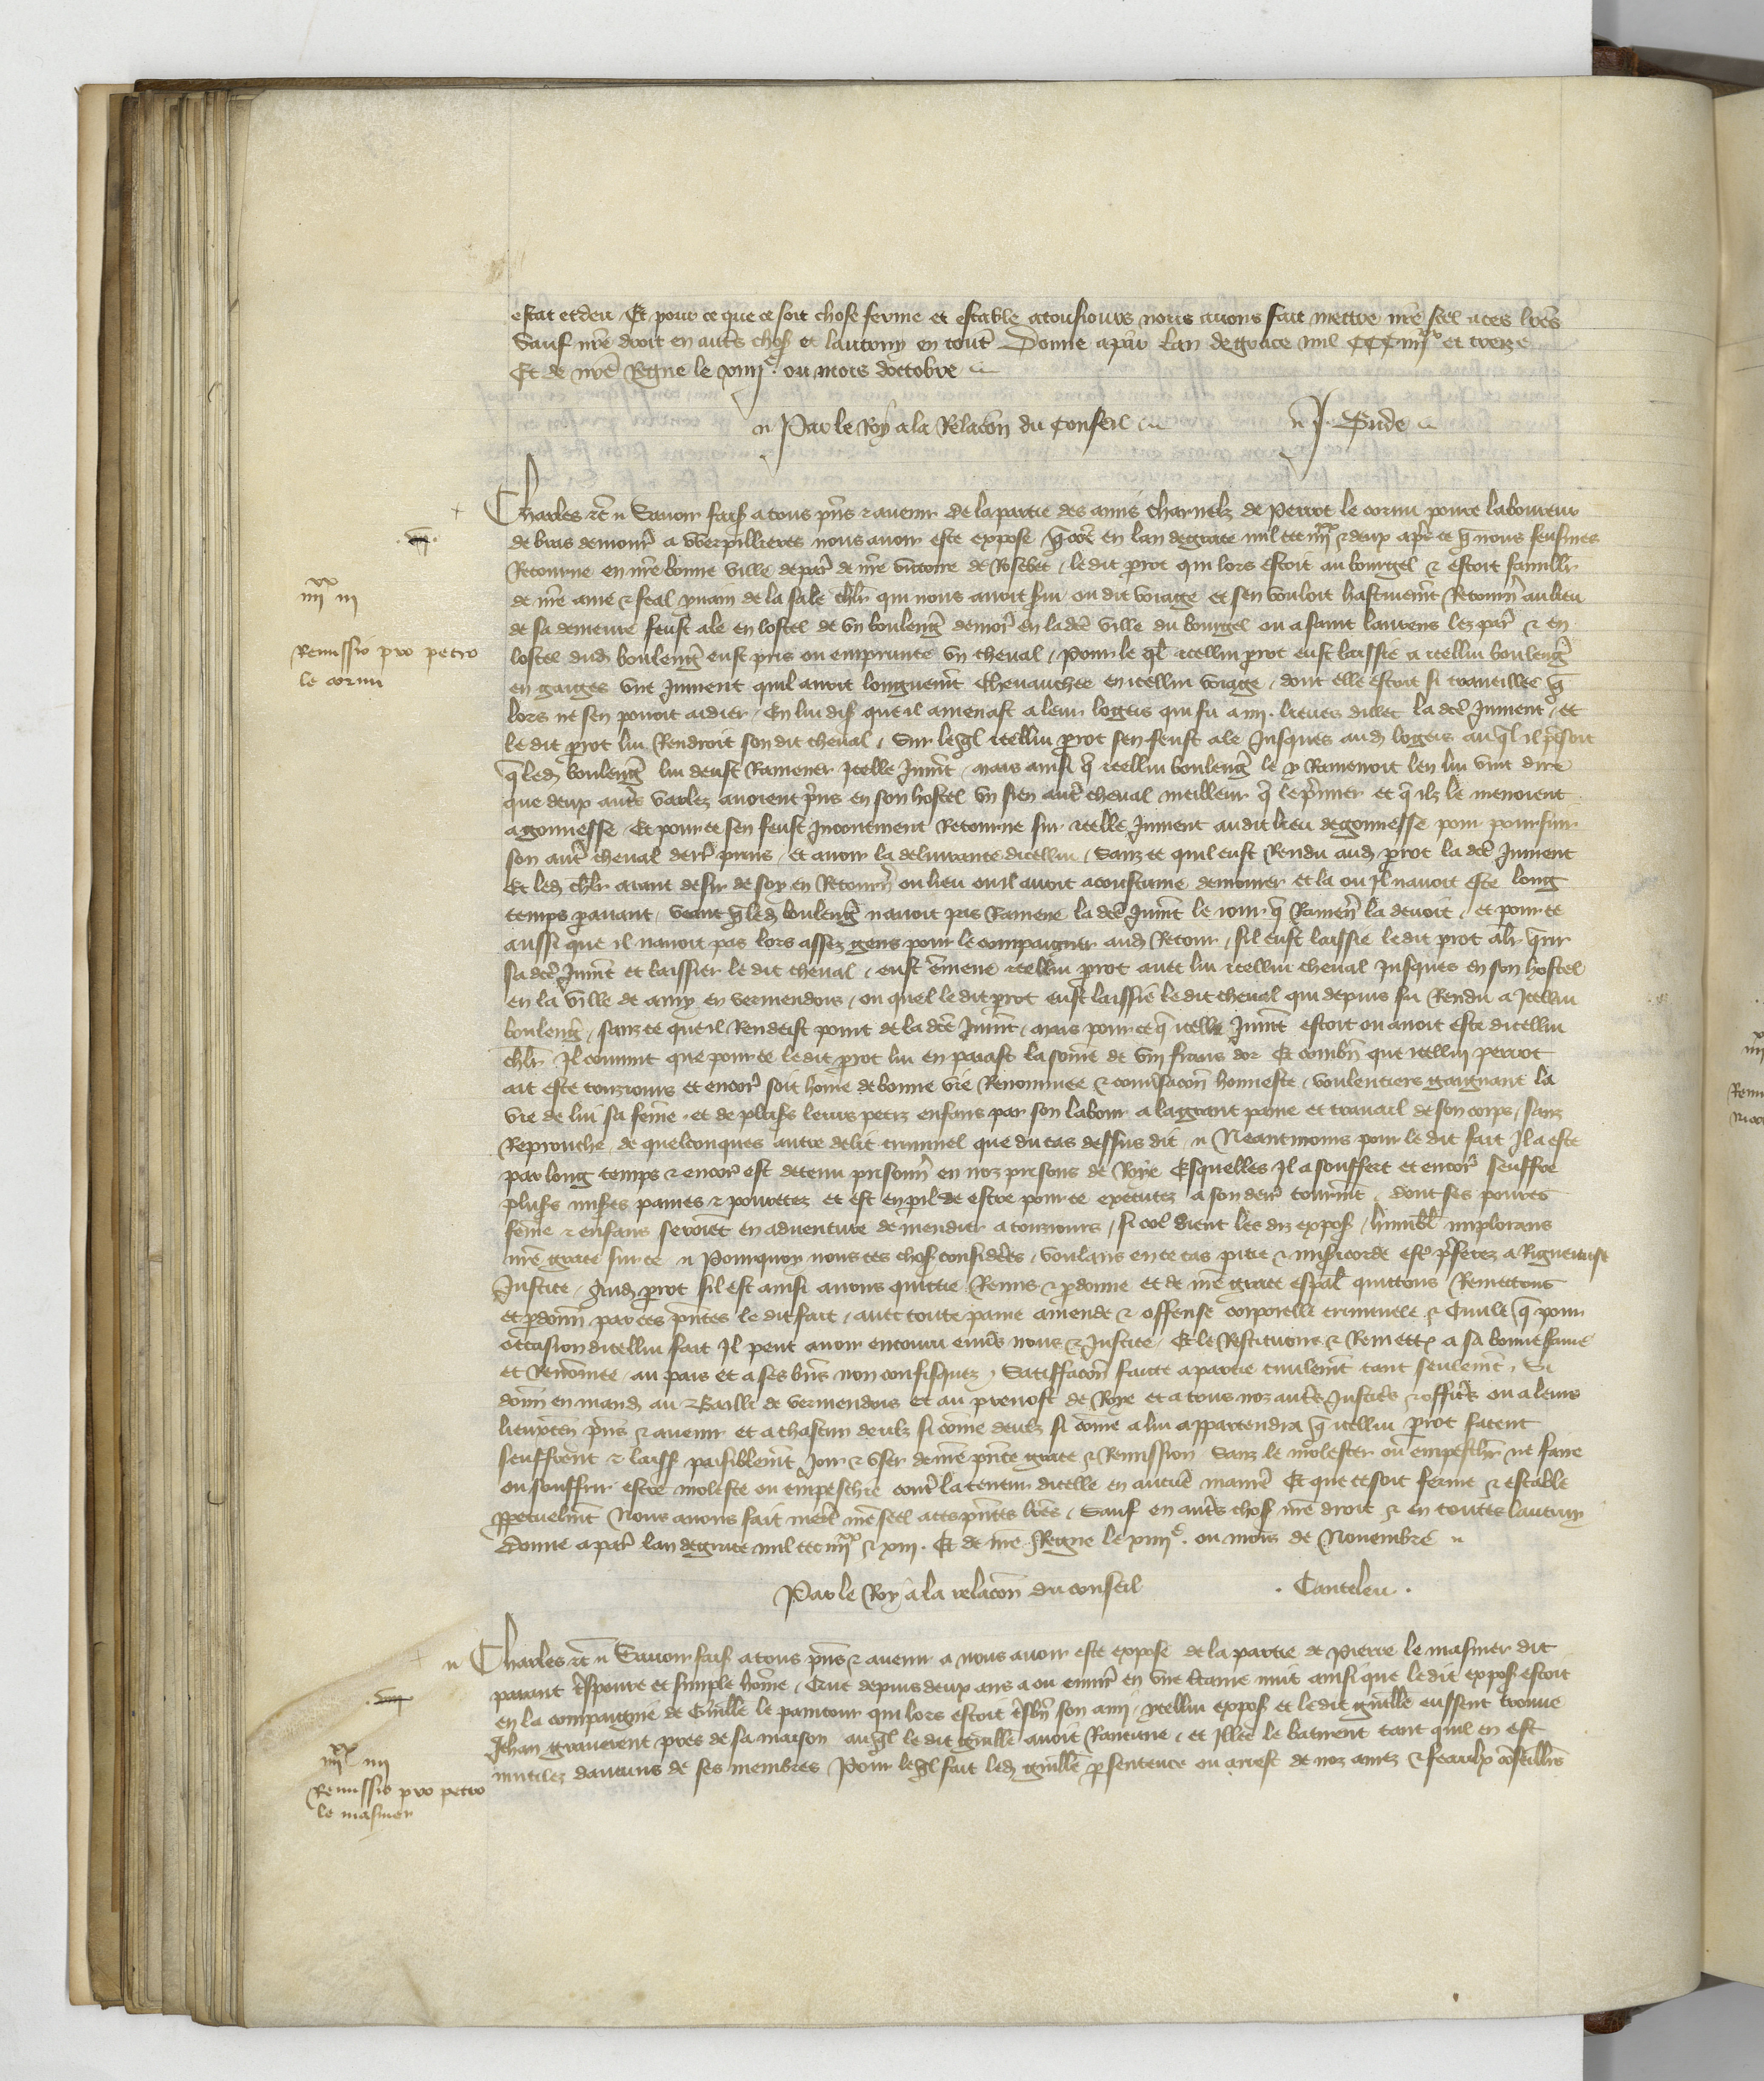 estat et deu. Et pour ce que ce soit chose ferme et estable a tousiours nous auons fait mettre nre seel a ces lres
Sauf nre droit en autres choses et lautruy en toutes Donne a Paris lan de grace mil CCC iiiixx et treze
Et de nre Regne le xiiiie. ou mois doctobre
Par le Roy a la Relacon du Conseil J. Bude
Charles etc Sauoir faisons a tous pns et auenir de la partie des amis charnelz de Perrot le cornu poure laboureur
iiiixx iii
Remissio pro petro
le cornu
de bras demour a Werpillieres nous auoir este expose que comme en lan de grace mil ccc iiiixx et deux apres ce que nous feusmes
Retourne en nre bonne ville de par de nre victoire de Rosebec, le dit prot qui lors estoit au bourgel et estoit famillr
de nre ame et feal yuain de la sale chlr qui nous auoit serui ou dit voiage et sen vouloit hastiuement Retourn au lieu
de sa demeure feust ale en lostel de vn bouleng demor en la dce ville du bourgel ou a saint laurens lez par et en
lostel dud bouleng eust pris ou emprunte vn cheual, Pour le ql icellui prot eust laissie a icellui bouleng
en gaiges vne Jument quil auoit longuement Cheuauchee en icellui voiage, dont elle estoit si traueillee que
lors ne sen pouoit aidier, En lui dis que il amenast a leur logeis qui fu a iii. lieues dillec la dce Jument, et
le dit prot lui Rendroit son dit cheual, Sur leql icellui prot sen feust ale Jusques aud logeis auql il pensoit
q led bouleng lui deust Ramener icelle Jument, mais ainsi q icellui bouleng le y Ramenoit len lui vint dire
que deux autres varlez auoient prins en son hostel vn sien autre cheual meilleur q le primier et q ilz le menoient
a gonnesse, Et pour ce sen feust Incontinent Retourne sur icelle Jument au dit lieu de gonnesse pour poursuir
son autre cheual derr prins, et auoir la deliurance dicellui, Sanz ce quil eust Rendu aud prot la dce Jument
Et led chlr aiant desir de soy en Retourn ou lieu ou il auoit acoustume demourer et la ou Il nauoit este long
temps parauant, veant q led bouleng nauoit pas Ramene la dce Jument le iour q Ramener la deuoit, et pour ce
aussi que il nauoit pas lors assez gens pour le compaigner aud Retour, sil eust laissie le dit prot aler querir
sa dce Jument et laissier le dit cheual, eust emene icellui prot auec lui icellui cheual Jusques en son hostel
en la ville de amy en vermendois, ou quel le dit prot eust laissie le dit cheual qui depuis fu Rendu a Icellui
bouleng, sanz ce que il Rendeist point de la dce Jument, mais pour ce q icelle Jument estoit ou auoit este dicellui
chlr Il conuint que pour ce le dit prot lui en paiast la somme de viii frans dor Et combien que icellui perrot
ait este touziours et encor soit home de bonne vie Renommee et conuersacon honneste, voulentiers gaingnant la
vie de lui sa feme, et de plusrs leurs petiz enfans par son labour a la grant paine et trauail de son corps, sanz
Reprouche de quelconques autre delit criminel que du cas dessus dit Neantmoins pour le dit fait Il a este
par long temps et encor est detenu prisonn en noz prisons de Roye Esquelles Il a souffert et encor seuffre
plusrs miseres paines et pouretez et est en peril de estre pour ce executez a son derr tourment, dont ses poures
feme et enfans seroient en aduenture de mendier a touziours, si coe dient les diz expos, humblement implorans
nre grace sur ce Pourquoy nous ces choses considerees, voulans en ce cas pitie et misericorde estre preferez a Rigueur de
Justice, Aud prot sil est ainsi auons quittie Remis et pardonne et de nre grace espal quittons Remettons
et pardonn par ces pntes le dit fait, auec toute paine amende et offense corporelle criminele et Ciuile q pour
occasion dicellui fait Il peut auoir encouru enuers nous et Justice, Et le Restituons et Remett a sa bonne fame
et Renommee au pais et a ses biens non confisquez, Satisfacon faicte a partie ciuilement tant seulement, Si
donn en mand au Bailli de vermendois et au preuost de Roye et a tous noz autres Justic et offic ou a leurs
lieuxten pns et auenir et a chascun deulz si come deulz si come a lui appartendra q icellui prot facent
seuffrent et laiss paisiblement Joir et vser de nre pnte grace et Remission Sanz le molester ou empeschr ne faire
ou souffrir estre moleste ou empeschie contre la teneur dicelle en aucune maniere Et que ce soit ferme et estable
perpetuelment Nous auons fait mectre nre seel a ces pntes lres, Sauf en autres choses nre droit et en toutes lautruy
Donne a par lan de grace mil ccc iiiixx et xiii. Et de nre Regne le xiiiie. ou mois de Nouembre
Par le Roy a la relacon du conseil . Canteleu .
Charles etc Sauoir faisons a tous pns et auenir a nous auoir este expose de la partie de Pierre le masnier dit
iiiixx iiii
Remissio pro petro
le masnier
paiant tres poure et simple home, Que depuis deux ans a ou enuir en vne certaine nuit ainsi que le dit expos estoit
en la compaignie de Guille le paintour qui lors estoit tres bien son ami, ycellui expos et le dit guille eussent trouue
Jehan grauerent pres de sa maison auql le dit guille auoit Rancune, et Illec le batirent tant quil en est
mutilez daucuns de ses membres Pour leql fait led guille par sentence ou arrest de noz amez et feaulx conseillrs